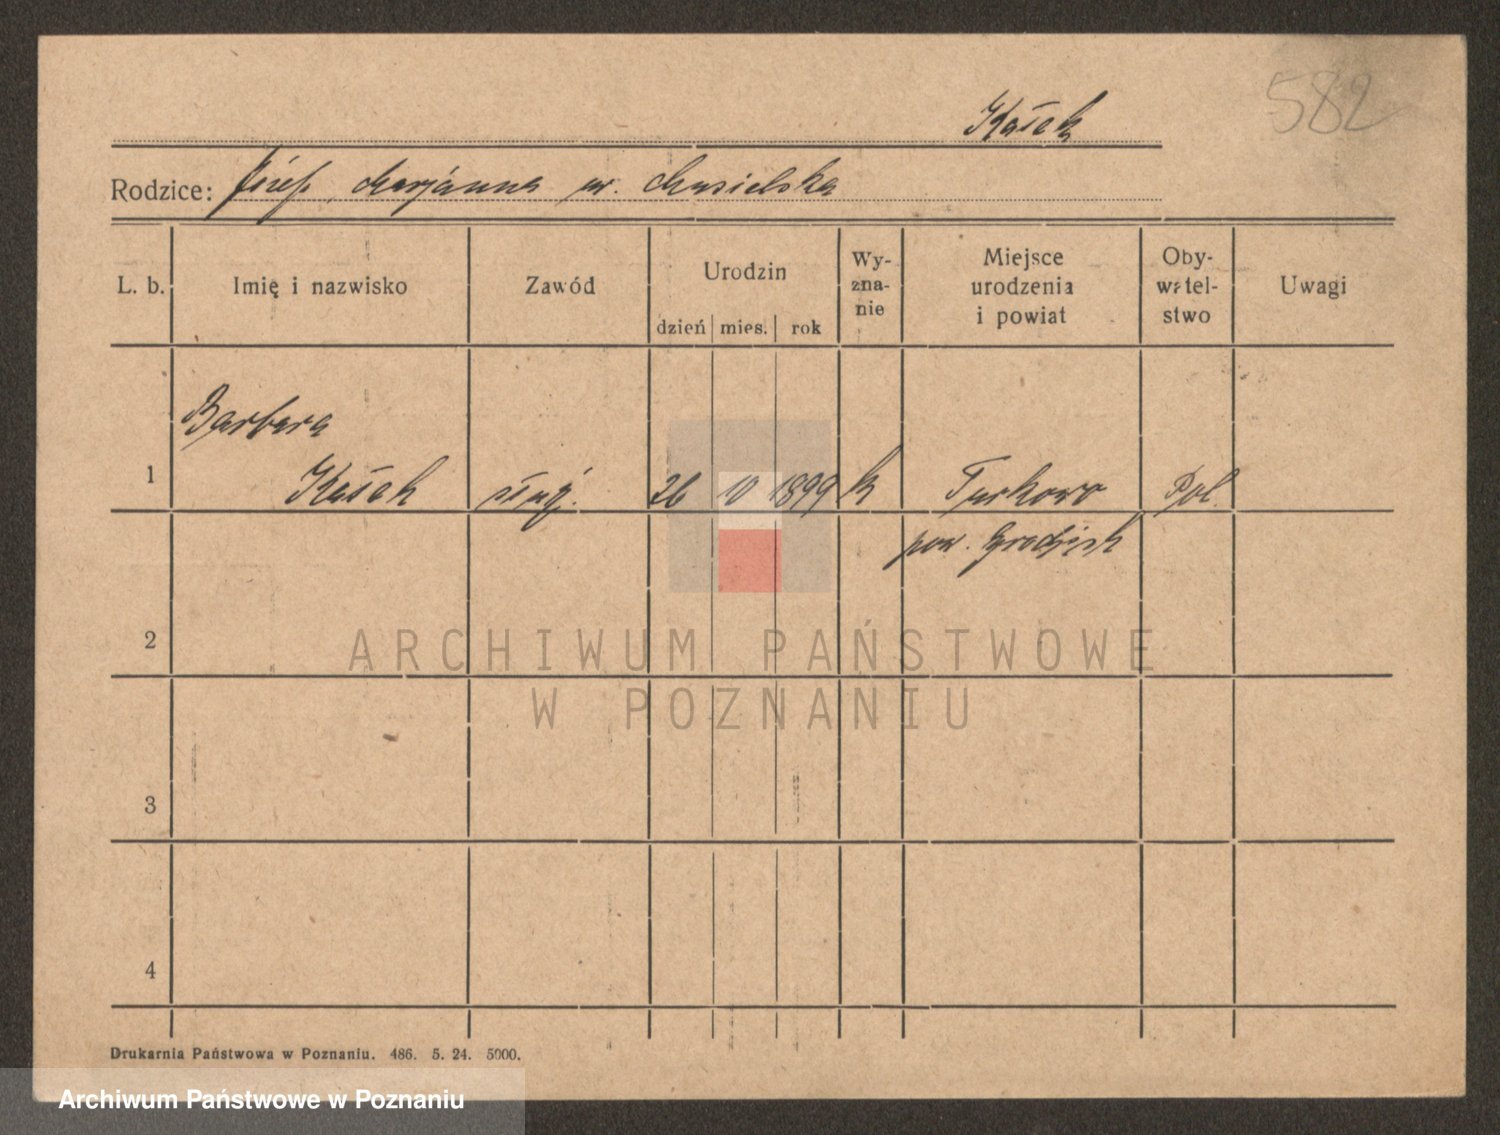 582
Kąśek
Rodzice: Józef, Marjanna ur. Musielska
L. b. Imię i nazwisko Zawód Urodzin dzień mies. rok Wy-zna-nie Miejsce urodzenia i powiat Oby-watel-stwo Uwagi
Barbara
1 służ. 26 10 1899 k Turkowo Pol.
pow. Grodzisk
2
ARCHIWUM PAŃSTWOWE
W POZNANIU
3
4
Drukarnia Państwowa w Poznaniu. 486. 5. 24. 5000.
Archiwum Państwowe w Poznaniu